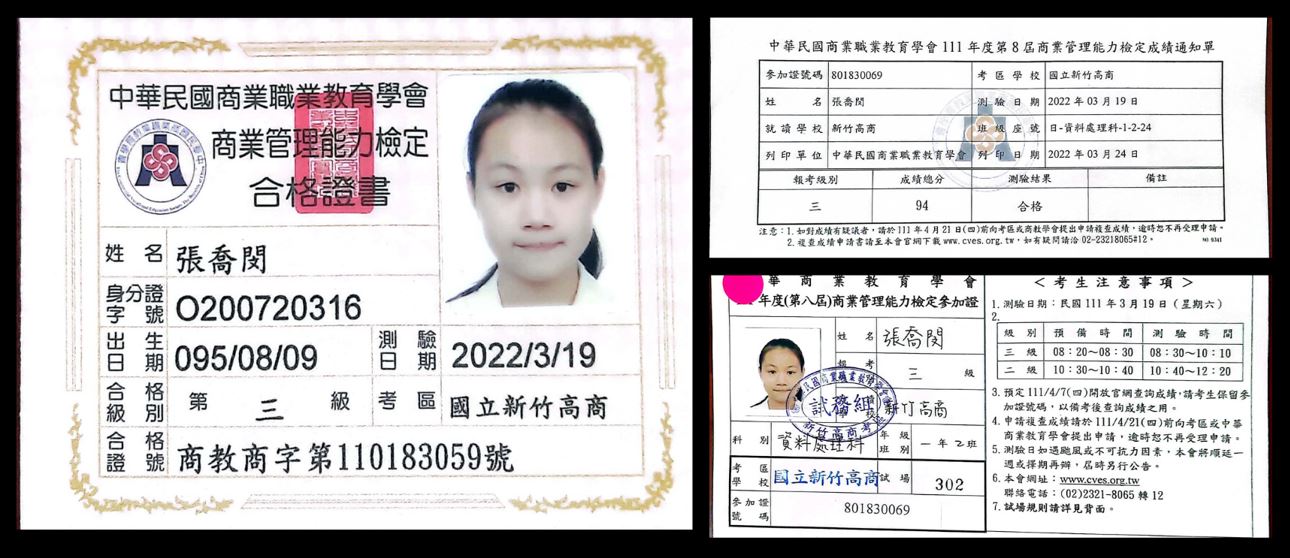 中華民國商業職業教育學會
商業管理能力檢定
合格證書
姓名 張喬閔
身分證字號 O200720316
出生日期 095/08/09 測驗日期 2022/3/19
合格級別 第三級 考區 國立新竹高商
合格證號 商教商字第110183059號
中華民國商業職業教育學會 111 年度第 8 屆商業管理能力檢定成績通知單
參加證號碼 801830069 考區學校 國立新竹高商
姓名 張喬閔 測驗日期 2022 年 03 月 19 日
就讀學校 新竹高商 班級座號 日-資料處理科-1-2-24
列印單位 中華民國商業職業教育學會 列印日期 2022 年 03 月 24 日
報考級別 成績總分 測驗結果 備註
三 94 合格
注意:1.如對成績有疑議者,請於 111 年 4 月 21 日(四)前向考區或商教學會提出申請複查成績,逾時恕不再受理申請。
2.複查成績申請書請至本會官網下載 www.cves.org.tw,如有疑問請洽 02-23218065#12。
華商業教育學會
年度(第八屆)商業管理能力檢定參加證
姓名 張喬閔
報考 三 級
新竹高商
試務組
新竹高商考區
科別 資料處理科 年級班別 一年2班
考區學校 國立新竹高商 試場 302
參加證號碼 801830069
<考生注意事項>
1.測驗日期:民國 111 年 3 月 19 日(星期六)
2.
級別 預備時間 測驗時間
三級 08:20~08:30 08:30~10:10
二級 10:30~10:40 10:40~12:20
3.預定 111/4/7(四)開放官網查詢成績,請考生保留參
加證號碼,以備考後查詢成績之用。
4.申請複查成績請於 111/4/21(四)前向考區或中華
商業教育學會提出申請,逾時恕不再受理申請。
5.測驗日如遇颱風或不可抗力因素,本會將順延一
週或擇期再辦,屆時另行公告。
6.本會網址:www.cves.org.tw
聯絡電話:(02)2321-8065 轉 12
7.試場規則請詳見背面。